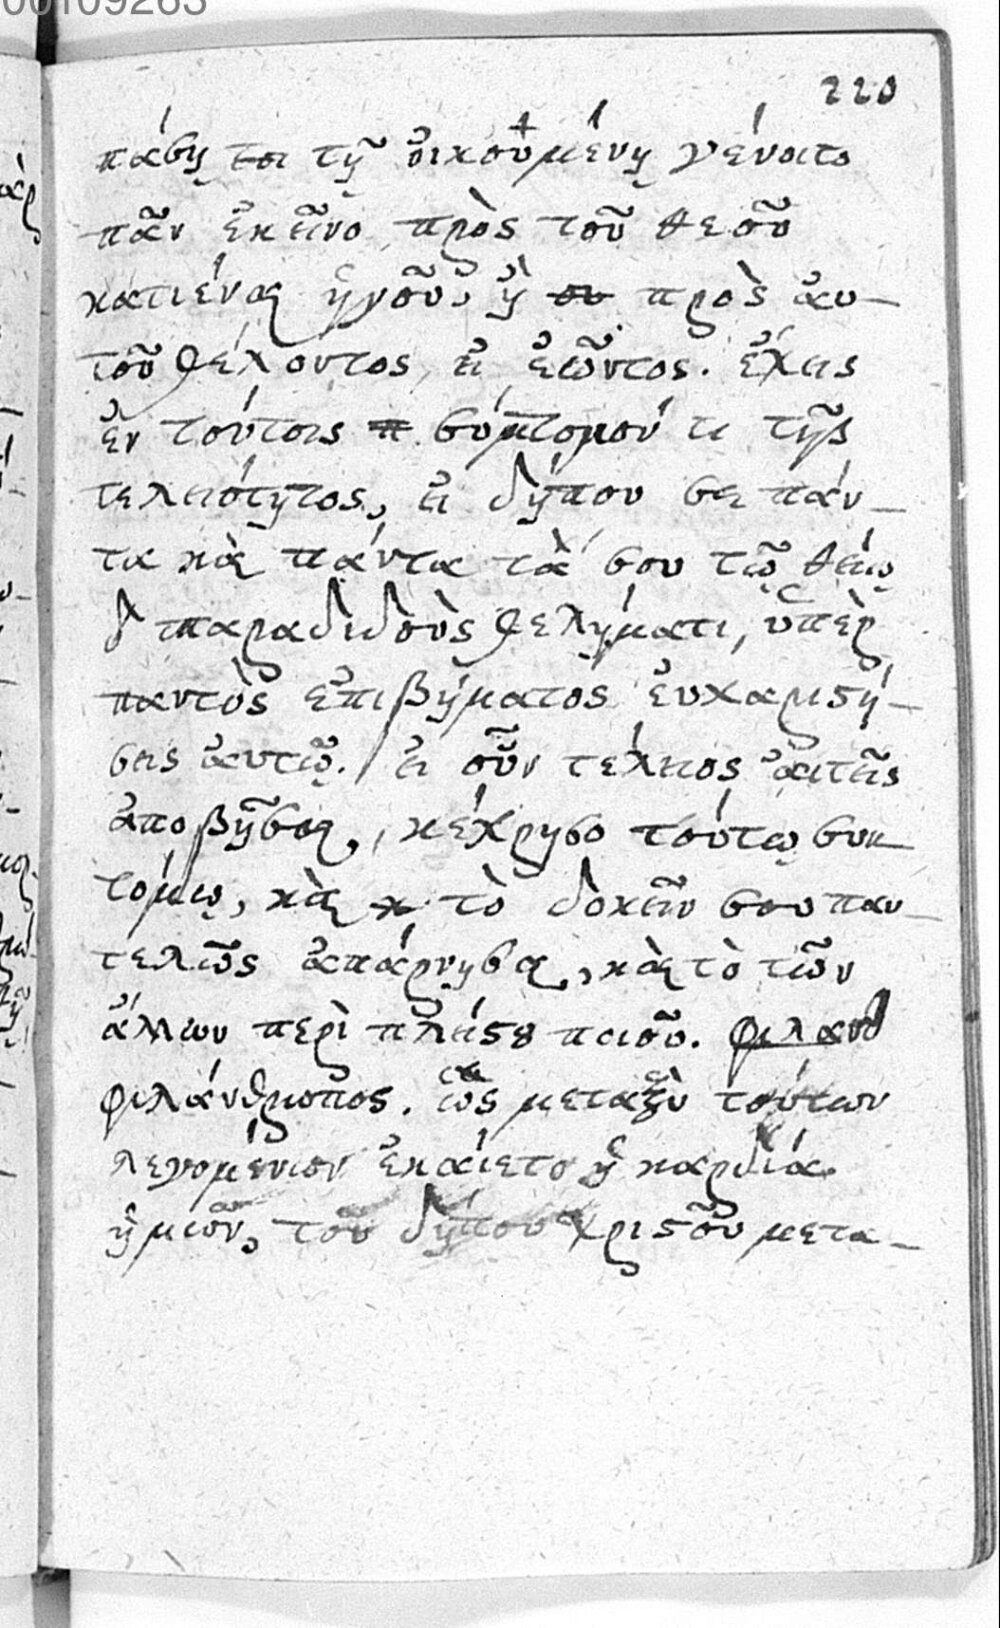 00109263
220
πάσῃ τοι τῇ οἰκουμένῃ γένοιτο
πᾶν ἐκεῖνο πρὸς τοῦ θεοῦ
κατιέναι ἡγοῦ, ἢ ου πρὸς αὐ-
τοῦ θέλοντος, εἰ ἐῶντος. ἔχεις
ἐν τούτοις π σύμτομόν τι τῆς
τελειότητος, εἰ δήπου σε πάν-
τα καὶ πάντα τὰ σου τῷ θείῳ
παραδιδοὺς θελήματι, ὑπὲρ
παντὸς ἐπιβήματος εὐχαριστή-
σεις αὐτῷ. εἰ οὖν τέλειος αἰτεῖς
ἀποβῆσαι, κέχρησο τούτῳ συν
τόμῳ, καὶ κ τὸ δοκεῖν σου παν-
τελῶς ἀπάρνησαι, καὶ τὸ τῶν
ἄλλων περὶ πλείστου ποιοῦ. φιλανθ
φιλάνθρωπος. ὡς μεταξὺ τούτων
λεγομένων ἐκαίετο ἡ καρδία
ἡμῶν, τοῦ δήπου χριστοῦ μετα-